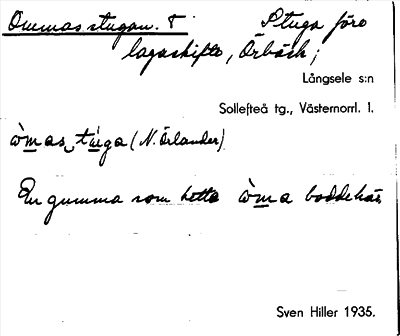 Ommasstugan. † Stuga före
lagaskifte, Örbäck;
Långsele s:n
Sollefteå tg., Västernorrl. l.
ò̀mas tu̇ga (N. Örlander)
En gumma som hette ò̀ma bodde här.
Sven Hiller 1935.